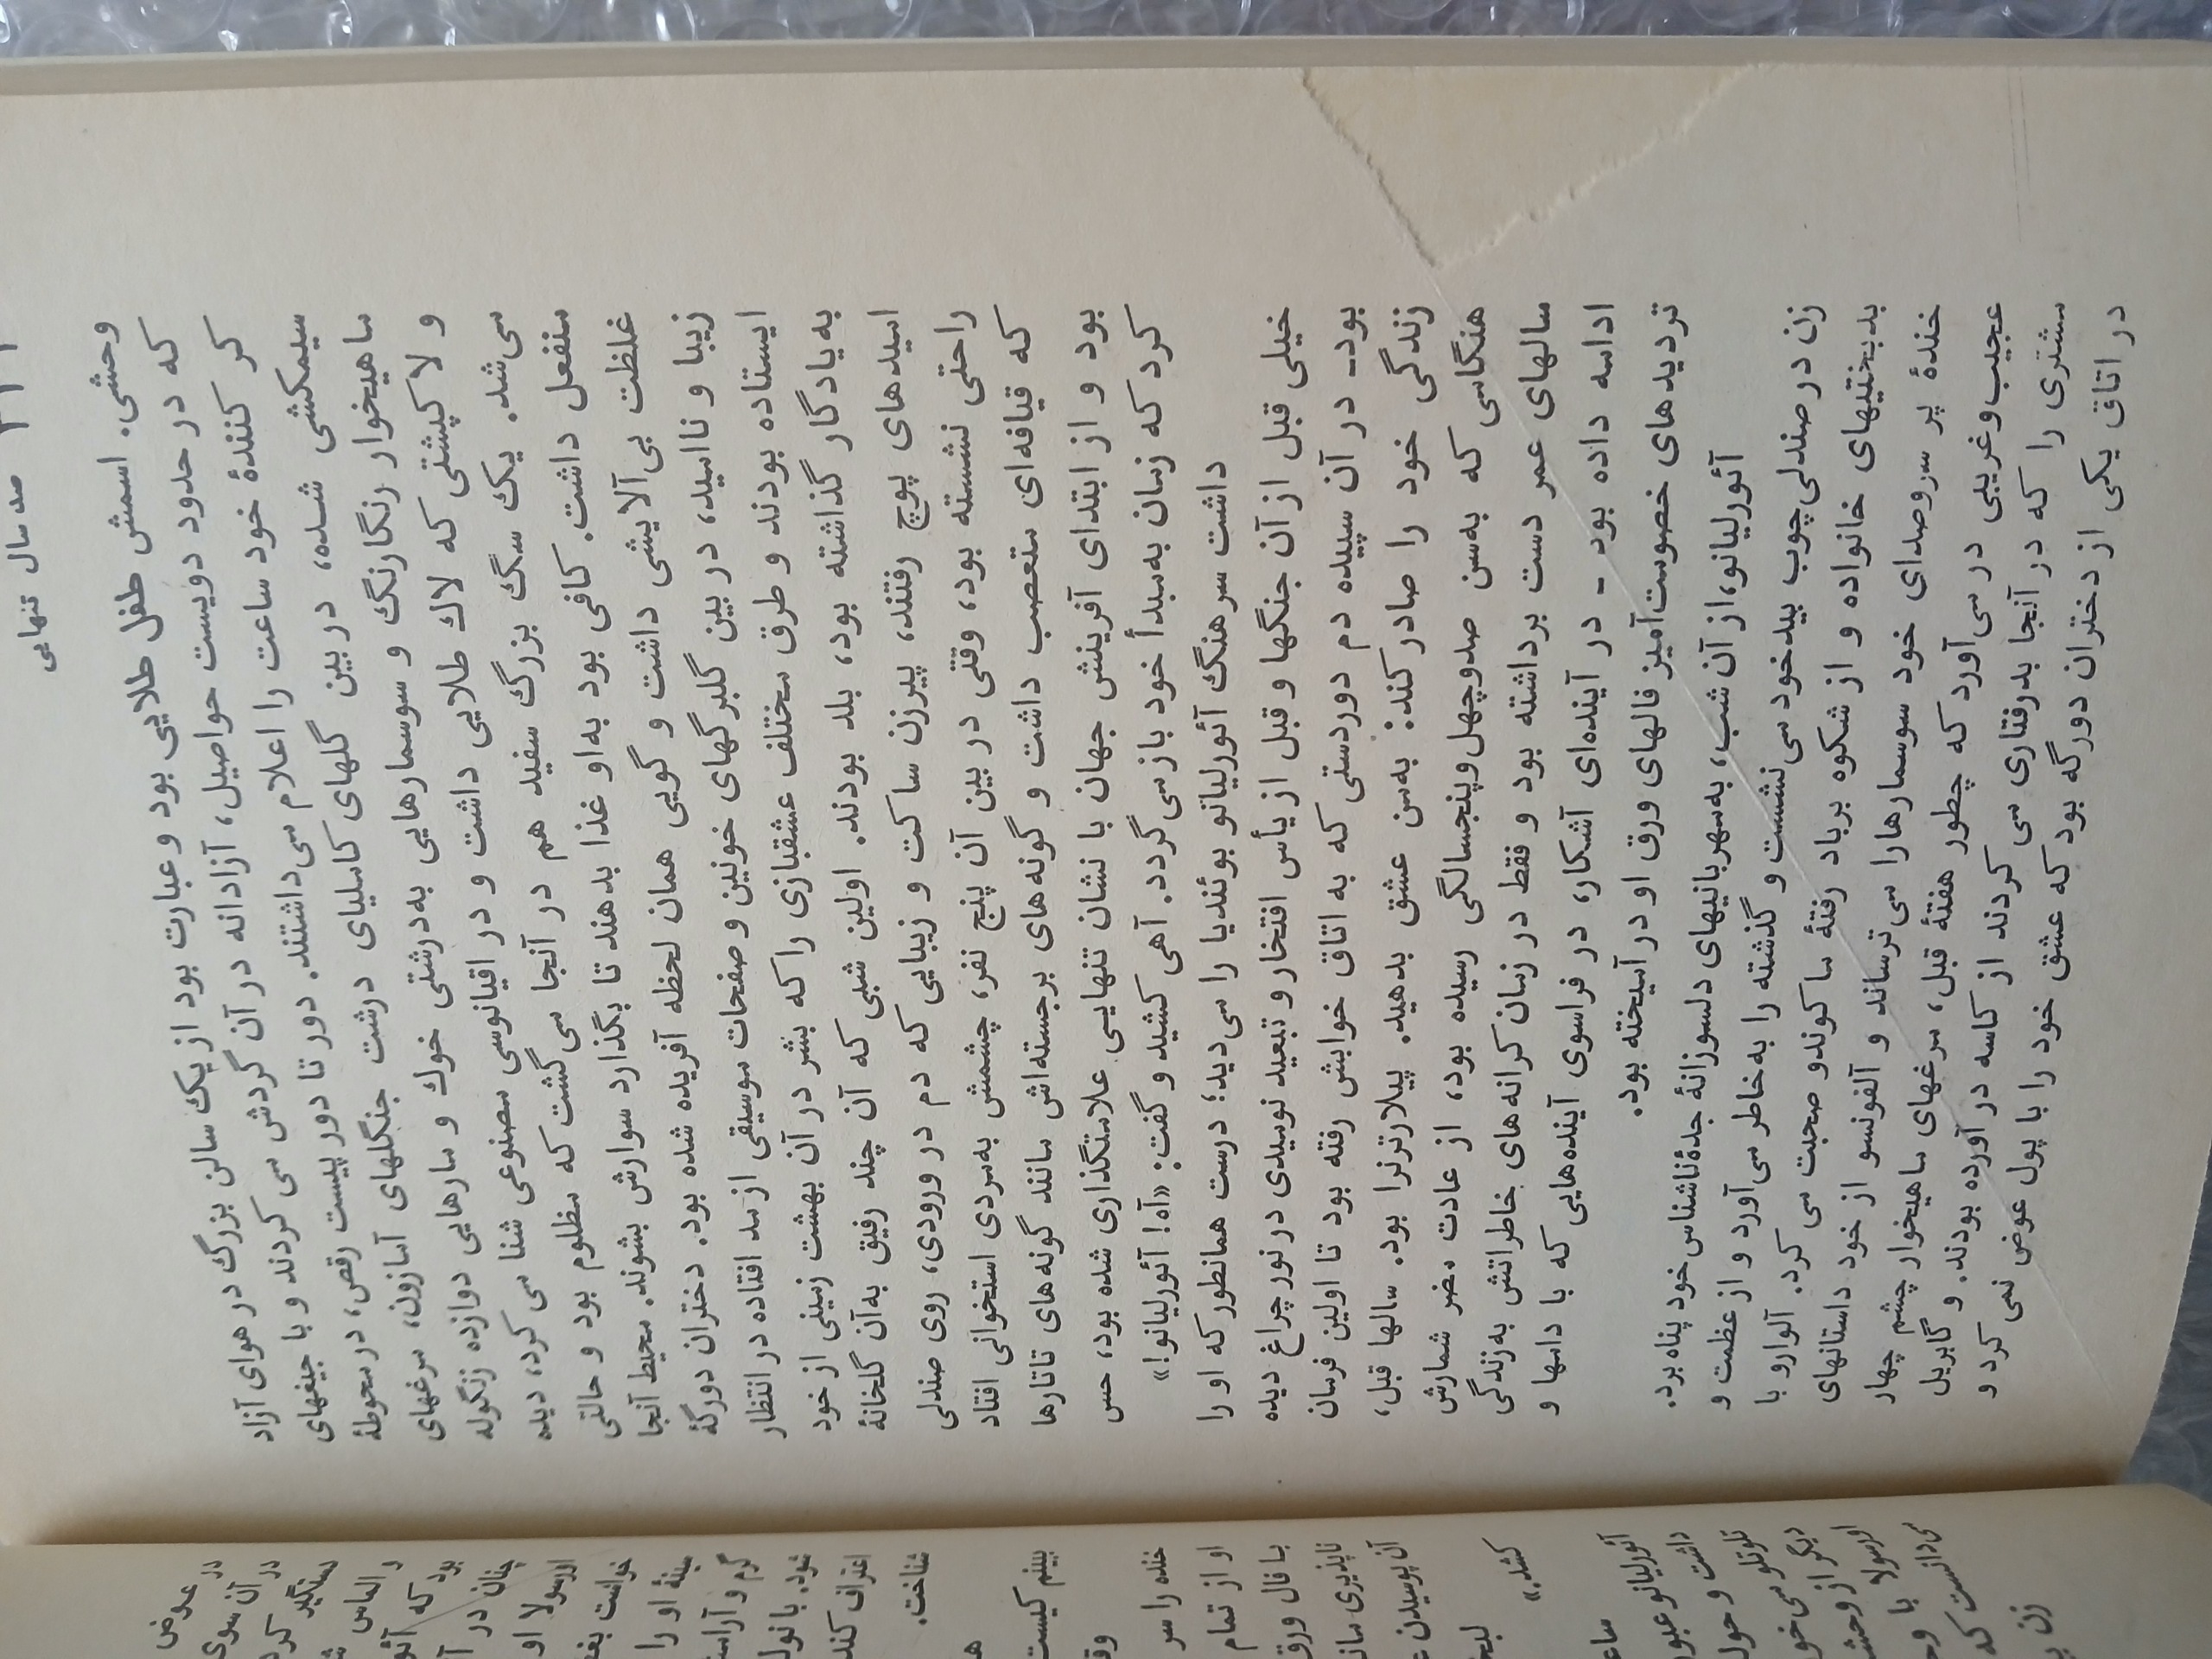 صد سال تنهایی
وحشی. اسمش طفل طلایی بود و عبارت بود از یک سالن بزرگ در هوای آزاد
که در حدود دویست حواصیل، آزادانه در آن گردش می‌کردند و با جیغهای
کر کنندهٔ خود ساعت را اعلام می‌داشتند. دور تا دور پیست رقص، در محوطهٔ
سیمکشی شده، در بین گلهای کاملیای درشت جنگلهای آمازون، مرغهای
ماهیخوار رنگارنگ و سوسمارهایی به‌درشتی خوک و مارهایی دوازده زنگوله
و لاکپشتی که لاک طلایی داشت و در اقیانوسی مصنوعی شنا می‌کرد، دیده
می‌شد. یک سگ بزرگ سفید هم در آنجا می‌گشت که مظلوم بود و حالتی
منفعل داشت. کافی بود به‌او غذا بدهند تا بگذارد سوارش بشوند. محیط آنجا
غلظت بی‌آلایشی داشت و گویی همان لحظه آفریده شده بود. دختران دورگهٔ
زیبا و ناامید، در بین گلبرگهای خونین و صفحات موسیقی از مد افتاده در انتظار
ایستاده بودند و طرق مختلف عشقبازی را که بشر در آن بهشت زمینی از خود
به‌یادگار گذاشته بود، بلد بودند. اولین شبی که آن چند رفیق به‌آن گلخانهٔ
امیدهای پوچ رفتند، پیرزن ساکت و زیبایی که دم در ورودی، روی صندلی
راحتی نشسته بود، وقتی در بین آن پنج نفر، چشمش به‌مردی استخوانی افتاد
که قیافه‌ای متعصب داشت و گونه‌های برجسته‌اش مانند گونه‌های تاتارها
بود و از ابتدای آفرینش جهان با نشان تنهایی علامتگذاری شده بود، حس
کرد که زمان به‌مبدأ خود بازمی‌گردد. آهی کشید و گفت: «آه! آئورلیانو!»
داشت سرهنگ آئورلیانو بوئندیا را می‌دید؛ درست همانطور که او را
خیلی قبل از آن جنگها و قبل از یأس افتخار و تبعید نومیدی در نور چراغ دیده
بود- در آن سپیده دم دوردستی که به اتاق خوابش رفته بود تا اولین فرمان
زندگی خود را صادر کند: به‌من عشق بدهید. پیلارترنرا بود. سالها قبل،
هنگامی که به‌سن صدوچهل‌وپنجسالگی رسیده بود، از عادت مضر شمارش
سالهای عمر دست برداشته بود و فقط در زمان کرانه‌های خاطراتش به‌زندگی
ادامه داده بود - در آینده‌ای آشکار، در فراسوی آینده‌هایی که با دامها و
تردیدهای خصومت‌آمیز فالهای ورق او در آمیخته بود.
آئورلیانو، از آن شب، به‌مهربانیهای دلسوزانهٔ جدهٔ ناشناس خود پناه برد.
زن در صندلی چوب بیدخود می‌نشست و گذشته را به‌خاطر می‌آورد و از عظمت و
بدبختیهای خانواده و از شکوه برباد رفتهٔ ماکوندو صحبت می‌کرد. آلوارو با
خندهٔ پر سروصدای خود سوسمارها را می‌ترساند و آلفونسو از خود داستانهای
عجیب‌وغریبی در می‌آورد که چطور هفتهٔ قبل، مرغهای ماهیخوار چشم چهار
مشتری را که در آنجا بدرفتاری می‌کردند از کاسه در آورده بودند. و گابریل
در اتاق یکی از دختران دورگه بود که عشق خود را با پول عوض نمی‌کرد و
در عوض
در آن سوی
دستگیر کرد
و الماس
بود که
چنان در
اورسولا او
خواست
او را
گرم و
شود. با
اعتراف کند
شناخت.
ببینم کیست
خنده را سر
او از تمام
با فال ورق
ناپذیری
آن بوسیدن
کشد.»
آئورلیانو
داشت و
دیگر از
اورسولا با
می‌دانست که